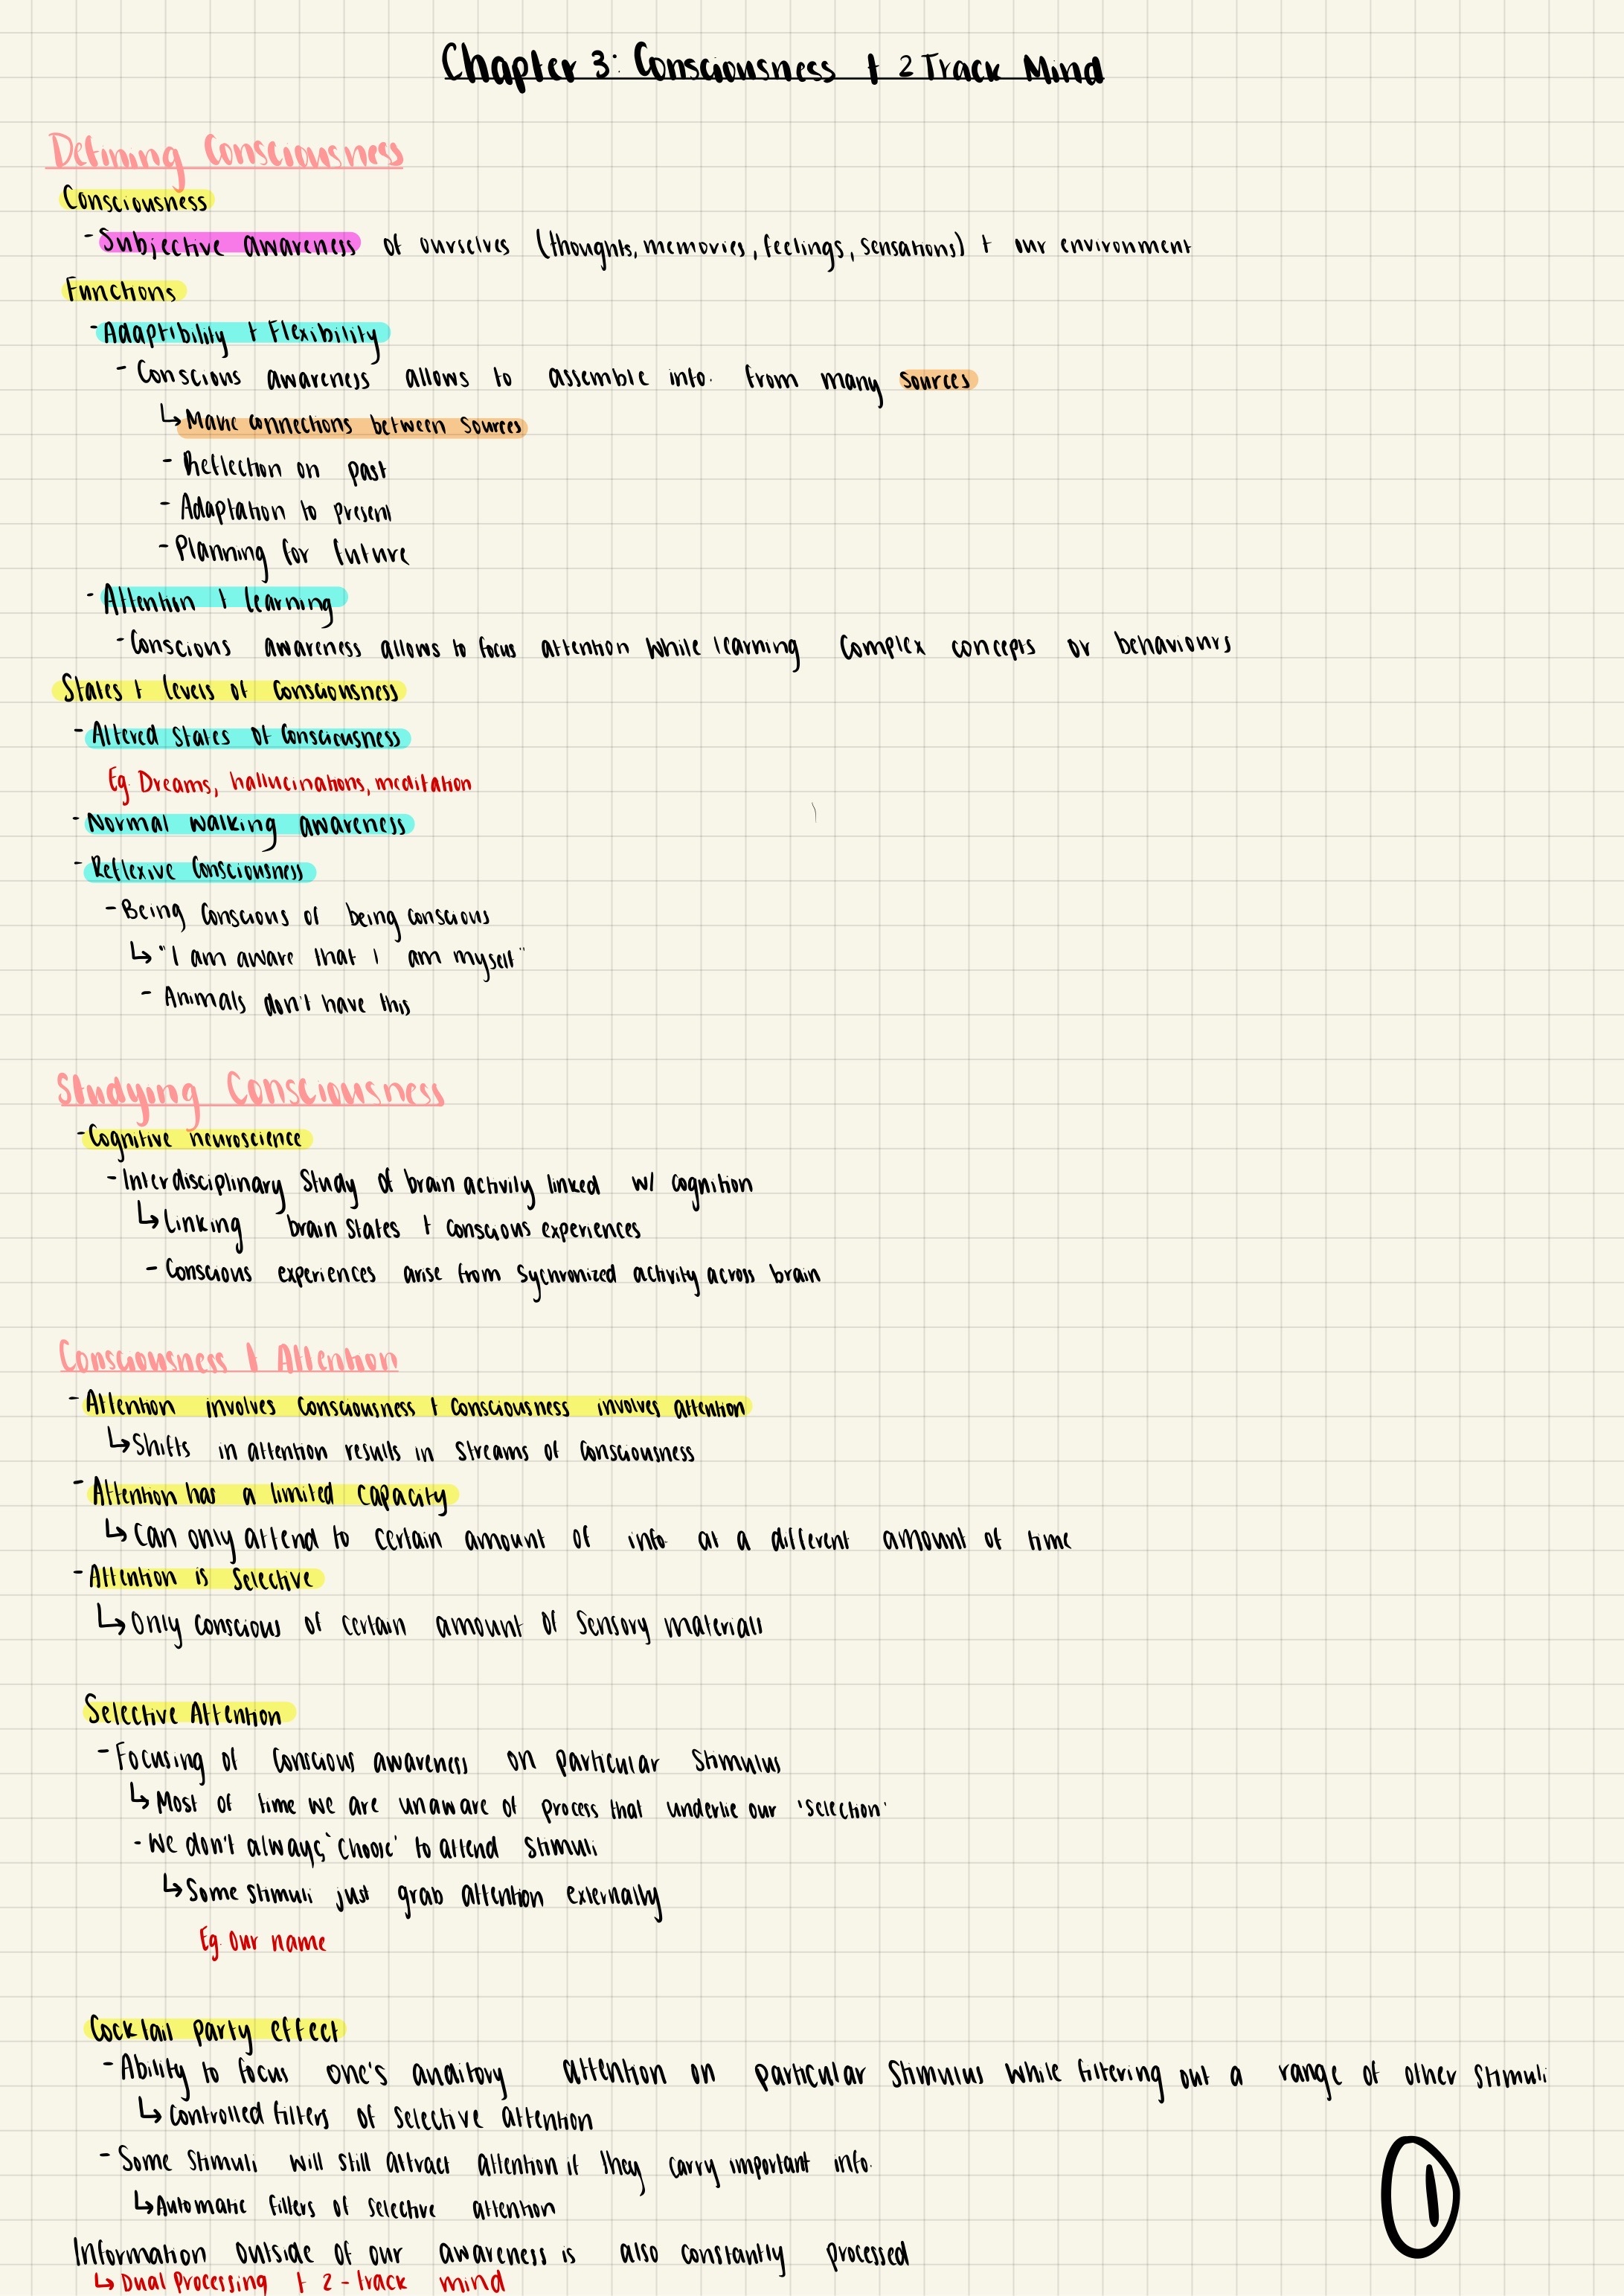 Chapter 3: Consciousness + 2 Track Mind
Defining Consciousness
Consciousness
- Subjective awareness of ourselves (thoughts, memories, feelings, sensations) + our environment
Functions
- Adaptibility + Flexibility
- Conscious awareness allows to assemble info. from many sources
↳ Make connections between sources
- Reflection on past
- Adaptation to present
- Planning for future
- Attention + learning
- Conscious awareness allows to focus attention while learning complex concepts or behaviours
States + levels of consciousness
- Altered states of consciousness
Eg. Dreams, hallucinations, meditation
- Normal walking awareness
- Reflexive consciousness
- Being conscious of being conscious
↳ "I am aware that I am myself"
- Animals don't have this
Studying Consciousness
- Cognitive neuroscience
- Interdisciplinary study of brain activity linked w/ cognition
↳ Linking brain states + conscious experiences
- Conscious experiences arise from sychronized activity across brain
Consciousness + Attention
- Attention involves consciousness + consciousness involves attention
↳ Shifts in attention results in streams of consciousness
- Attention has a limited capacity
↳ Can only attend to certain amount of info. at a different amount of time
- Attention is selective
↳ Only conscious of certain amount of sensory materials
Selective Attention
- Focusing of conscious awareness on particular stimulus
↳ Most of time we are unaware of process that underlie our 'selection'
- We don't always 'choose' to attend stimuli
↳ Some stimuli just grab attention externally
Eg. Our name
Cocktail party effect
- Ability to focus one's auditory attention on particular stimulus while filtering out a range of other stimuli
↳ Controlled filters of selective attention
- Some stimuli will still attract attention if they carry important info.
↳ Automatic filters of selective attention
Information outside of our awareness is also constantly processed
↳ Dual Processing + 2-track mind
1